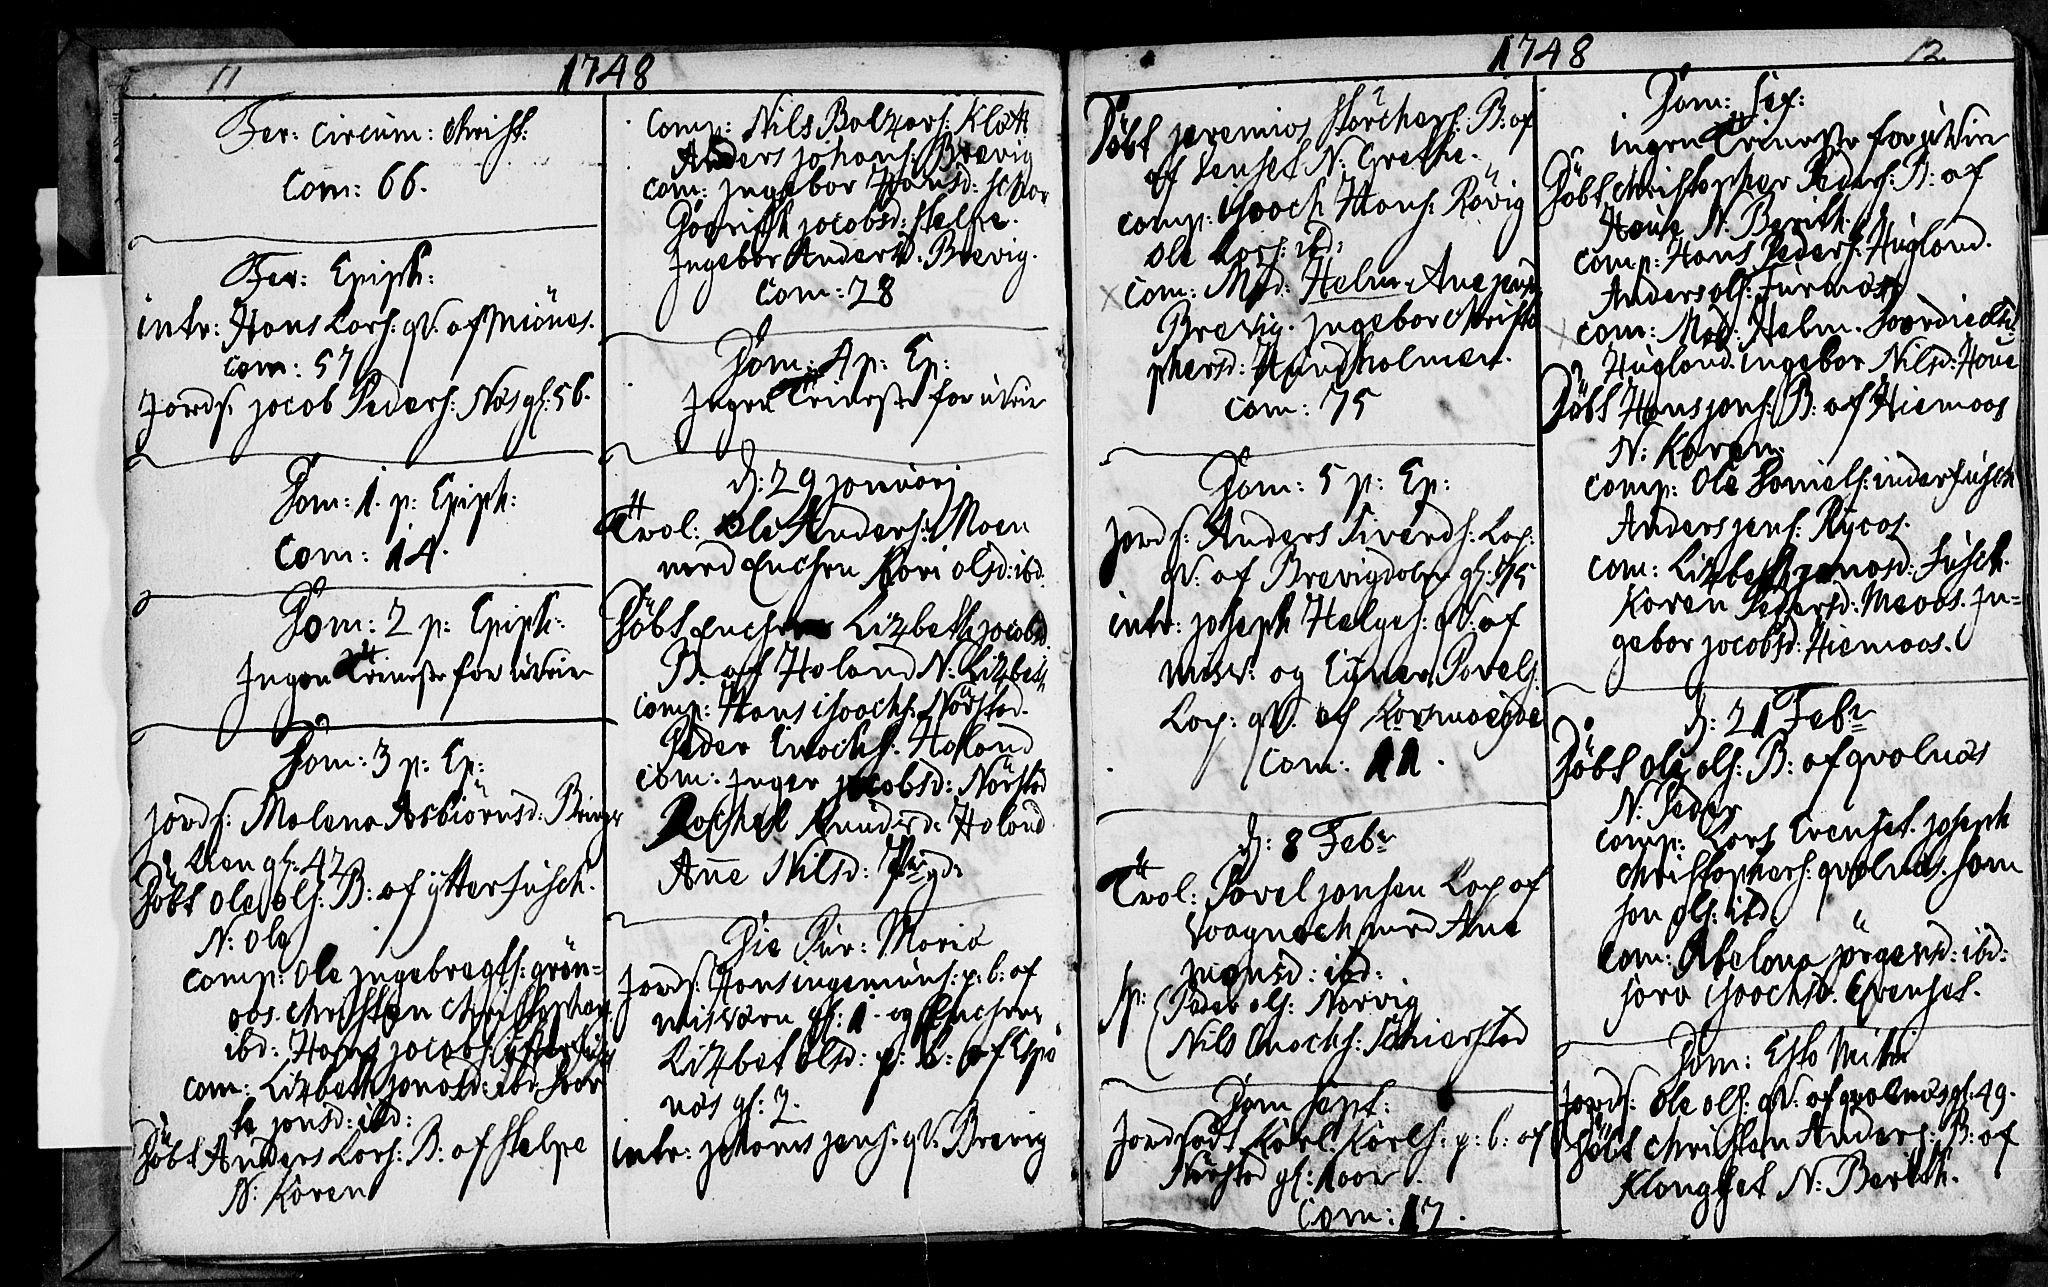 11
1748
Fer: Circum: Christ:
Com: 66.
Fer: Epiph:
intr: Hans Lars: qV: af Miönes.
Com: 57
Jords: Jacob Peders: Næs gl: 56.
Dom: 1. p: Epiph:
Com: 14.
Dom: 2 p: Epiph:
Ingen Tieneste for uVeir
Dom: 3 p: Ep:
Jords: Malena Asbiörnsd:
gl: 42
Döbt Ole Ols: B: af ytterfusch.
N: Ole
Comp: Ole Ingebregts: grön=
aas. Christen Christophers:
ibd: Hans Jacobs:
Com: Lizbeth Jonasd: ibd:
Jonsd: ibd:
Döbt Anders Lars: B: af Skelpe
N: Karen
Comp: Nils Balzars: Klæt
Anders Johans: Brevig
Com: Ingebor Hansd:
Jacobsd: Skelpe.
Ingebor Andersd. Brevig.
Com: 28
Dom: 4 p: Ep:
Ingen Tieneste for uVeir
d: 29 Januarj
Trol: Ole Anders: Moen
med Enchen Kari Olsd: ibd.
Döbt Enchen Lizbeth Jacobsd
B: af Haland N: Lizbet
Comp: Hans Isaachs: Nörstad.
Peder Enochs: Haland
Com: Inger Jacobsd: Nörstad
Rachel Knudsd: Haland
Ane Nilsd:
Die Pur: Mariæ
Jords: Hans Ingemuns: p: b: af
Misværn gl: 1. og Enchens
Lizbet Olsd: p: b: af Espe
næs gl: 2.
intr: Johanis Jens: qV: Brevig
1748
12.
Döbt Jeremias Störchers: B: af
af N: Grethe.
Comp: Isaach Hans: Rövig
Ole Lars: ibd:
Com: Md: Helm. Ane
Brevig. Ingebor Christo
phersd: Hundholmen.
Com: 75
Dom: 5 p: Ep:
Jords: Anders Siverds: Lap:
qV: af Brevigdalen
intr: Joseph Helges: qV: af
Misv: og Povels:
Lap: qV: af
Com: 11.
d: 8 Febr
Trol: Povel Jonsen Lap af
med Ane
ibd:
sp: Peder Ols: Norvig
Nils Enochs: Schierstad
Dom Sept:
Jordfæst Karl Karls: p: b: af
Nörstad gl: 1 aar.
Com: 17.
Dom: Sex:
ingen Tieneste for uVeir
Döbt Christopher Peders: B: af
Houe N: Berith.
Comp: Hans Peders: Hugland.
Anders Ols: Furmoe
Com: Md: Helm.
Hugland. Ingebor Nilsd: Houe
Döbt Hans Jons: B: af Hiemaas
N: Karen.
Comp: Ole Daniels: inderfusch
Anders Jens:
Com: Lizbeth Jonasd: fusch.
Karen Pedersd: Meaas. In=
gebor Jacobsd: Hiemaas.
d: 21 Febr
Döbt Ole Ols: B: af qvalnæs
N: Peder
Comp: Lars Evenset. Joseph
Christophers: qvalnæs.
Jon Ols: ibd:
Com: Abelona Jörgensd: ibd:
Isaachsd: Evenset.
Dom: Esto Mihi
Jords: Ole Ols: qV: af qvalnæs gl: 49.
Döbt Christen Anders: B: af
Klongset N: Berith.